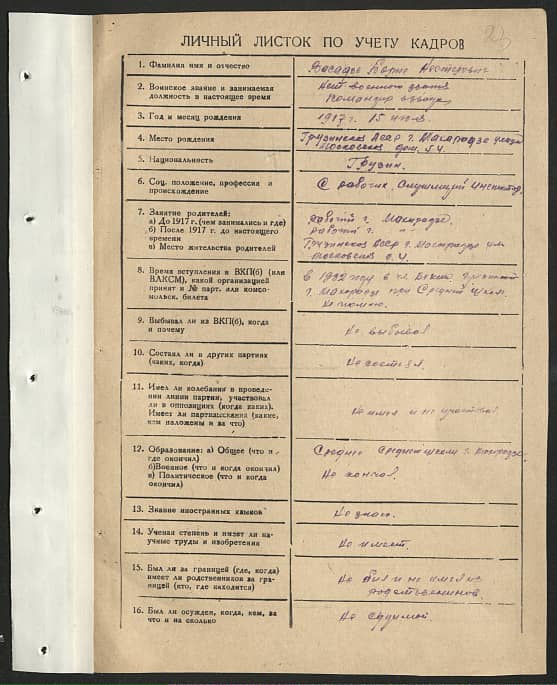 ЛИЧНЫЙ ЛИСТОК ПО УЧЕТУ КАДРОВ
1. Фамилия имя и отчество
Нестерович
2. Воинское звание и занимаемая
должность в настоящее время
Нет военного звания
Командир взвода
3. Год и месяц рождения
1917 г. 15
4. Место рождения
Грузинская АССР г. Махарадзе улица
Московская дом. 54.
5. Национальность
Грузин.
6. Соц. положение, профессия и
происхождение
Рабочих, Служащий
7. Занятие родителей:
а) До 1917 г. (чем занимались и где)
б) После 1917 г. до настоящего
времени
в) Место жительства родителей
Рабочий г. Махарадзе.
Рабочий г. „ „
Грузинская АССР г. Махарадзе ул.
Московская
8. Время вступления в ВКП(б) (или
ВЛКСМ), какой организацией
принят и № парт. или комсо-
мольск. билета
в 1932 году в
г. Махарадзе при Средней школе.
Не помню.
9. Выбывал ли из ВКП(б), когда
и почему
Не выбывал
10. Состоял ли в других партиях
(каких, когда)
Не состоял.
11. Имел ли колебания в проведе-
нии линии партии, участвовал
ли в оппозициях (когда каких).
Имеет ли партвзыскания (какие,
кем наложены и за что)
Не имел и не участвовал
12. Образование: а) Общее (что и
где окончил)
б) Военное (что и когда окончил)
в) Политическое (что и когда
окончил)
Среднее Средней школы г. Махарадзе.
Не кончал.
13. Знание иностранных языков
Не знаю.
14. Ученая степень и имеет ли на-
учные труды и изобретения
Не имеет.
15. Был ли за границей (где, когда)
имеет ли родственников за гра-
ницей (кто, где находится)
Не был и не имел
родственников.
16. Был ли осужден, когда, кем, за
что и на сколько
Не судимый.